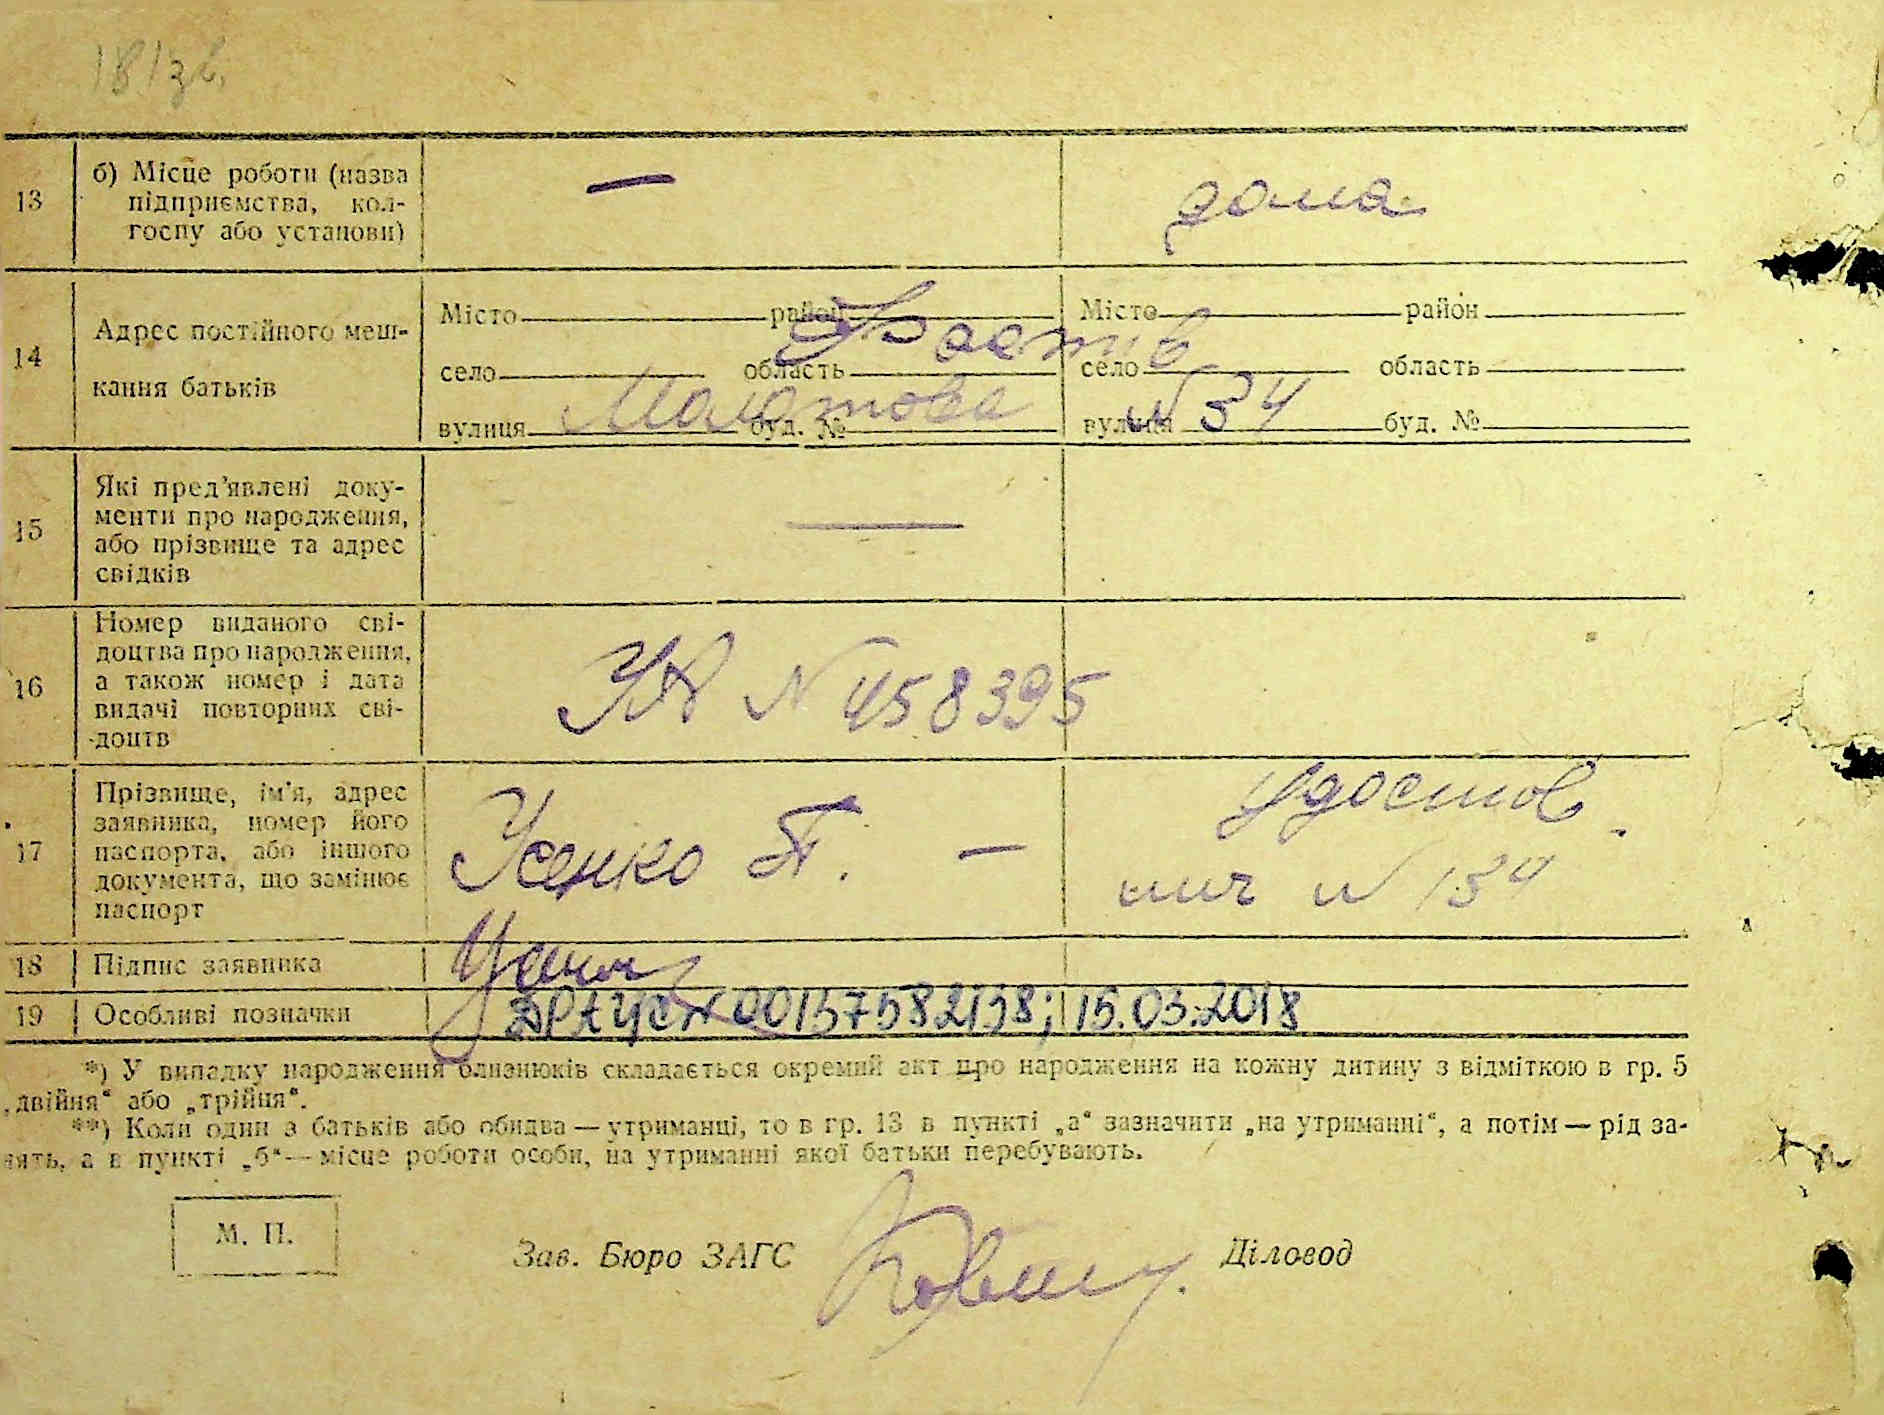 181 зв.
13
б) Місце роботи (назва
підприємства, кол-
госпу або установи)
—
дома
14
Адрес постійного меш-
кання батьків
Місто район
село область
вулиця буд. №
Місто район
село область
вулиця буд. №
Фастів
Молотова № 34
15
Які пред'явлені доку-
менти про народження,
або прізвище та адрес
свідків
—
16
Номер виданого сві-
доцтва про народження,
а також номер і дата
видачі повторних сві-
доцтв
УА № 458395
17
Прізвище, ім'я, адрес
заявника, номер його
паспорта, або іншого
документа, що замінює
паспорт
Усенко П. —
Удостов.
лич № 134
18
Підпис заявника
19
Особливі позначки
ДРАЦС № 00137582138; 15.03.2018
*) У випадку народження близнюків складається окремий акт про народження на кожну дитину з відміткою в гр. 5
„двійня" або „трійня".
**) Коли один з батьків або обидва — утриманці, то в гр. 13 в пункті „а" зазначити „на утриманні", а потім — рід за-
нять, а в пункті „б" — місце роботи особи, на утриманні якої батьки перебувають.
М. П.
Зав. Бюро ЗАГС
Діловод